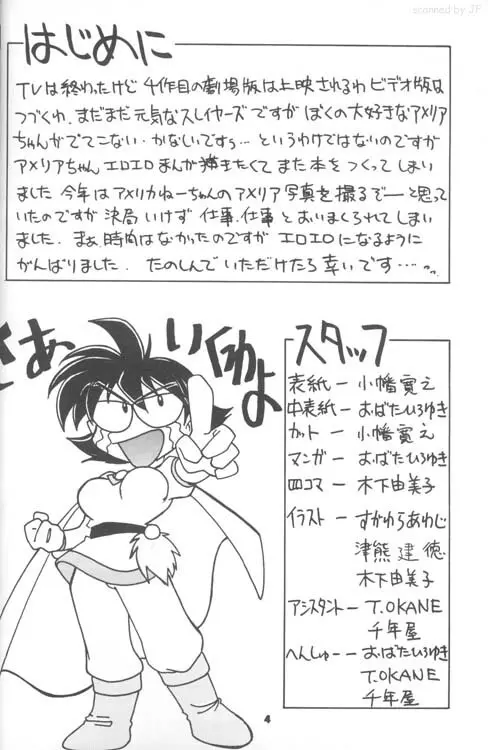 scanned by JF
はじめに
TVは終わったけど 4作目の劇場版は上映されるわ ビデオ版は
つづくわ、まだまだ元気なスレイヤーズですが ぼくの大好きなアメリア
ちゃんがでてこない・かなしいですぅ…というわけではないのですが
アメリアちゃん エロエロまんが描きたくて また本をつくってしまい
ました 今年はアメリカねーちゃんのアメリア写真を撮るぞーと思って
いたのですが 決局いけず 仕事、仕事とおいまくられてしまい
ました。まぁ時間はなかったのですが エロエロになるように
がんばりました。たのしんでいただけたら幸いです……
さあ いくわよ
スタッフ
表紙ー 小幡寛之
中表紙ー おばたひろゆき
カットー 小幡寛之
マンガー おばたひろゆき
四コマー 木下由美子
イラストー すがわらあわじ
津熊建徳
木下由美子
アシスタントー T.OKANE
千年屋
へんしゅーー おばたひろゆき
T.OKANE
千年屋
4